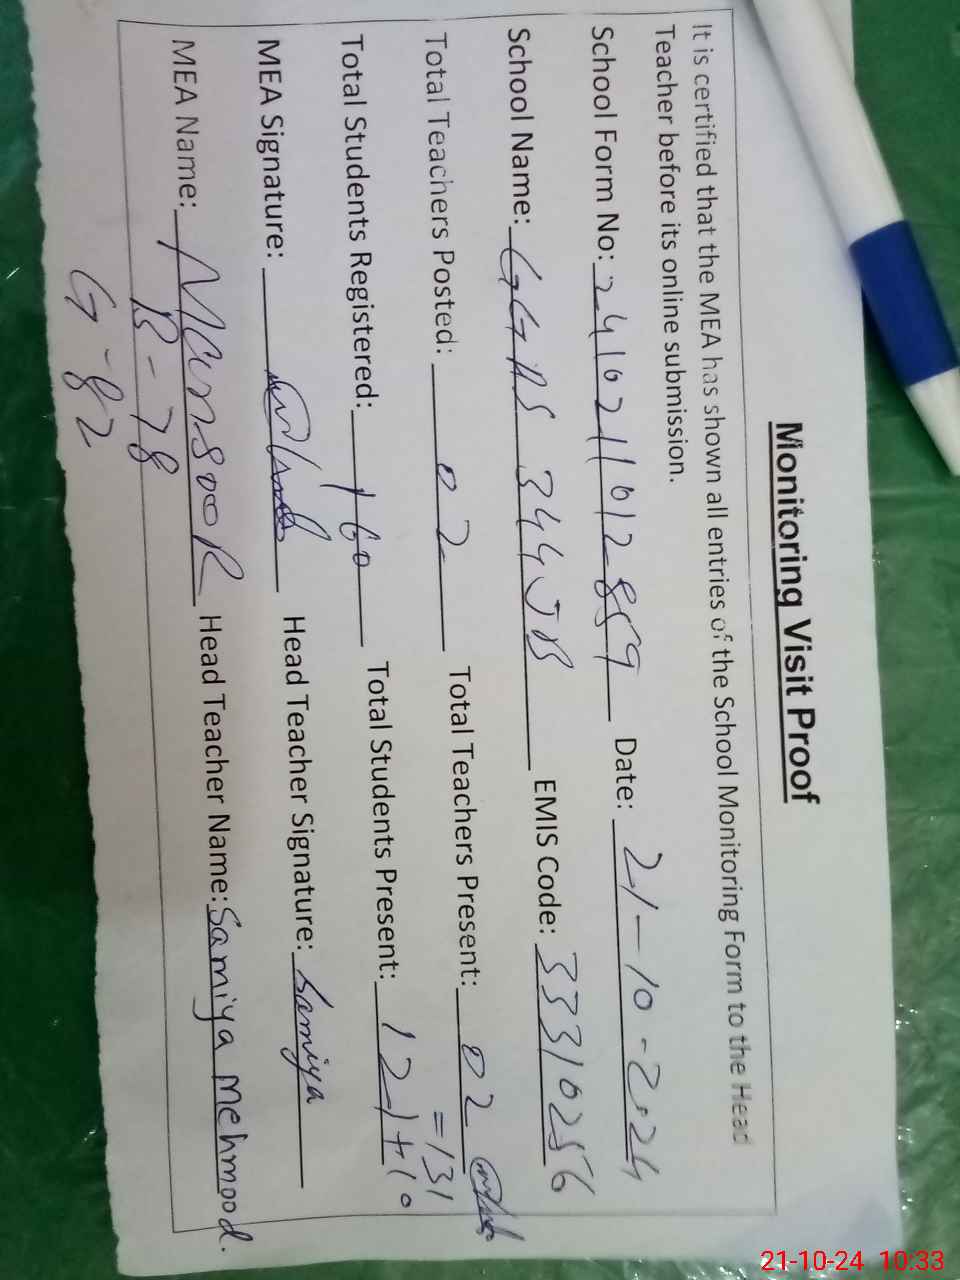 Monitoring Visit Proof
It is certified that the MEA has shown all entries of the School Monitoring Form to the Head
Teacher before its online submission.
School Form No: 2410211012859 Date: 21-10-2024
School Name: GGPS 344JB EMIS Code: 33310256
Total Teachers Posted: 02 Total Teachers Present: 02
Total Students Registered: 160 Total Students Present: 121+10
=131
MEA Signature: Head Teacher Signature: Samiya
MEA Name: Mansoor Head Teacher Name: Samiya Mehmood.
B-78
G-82
21-10-24 10:33